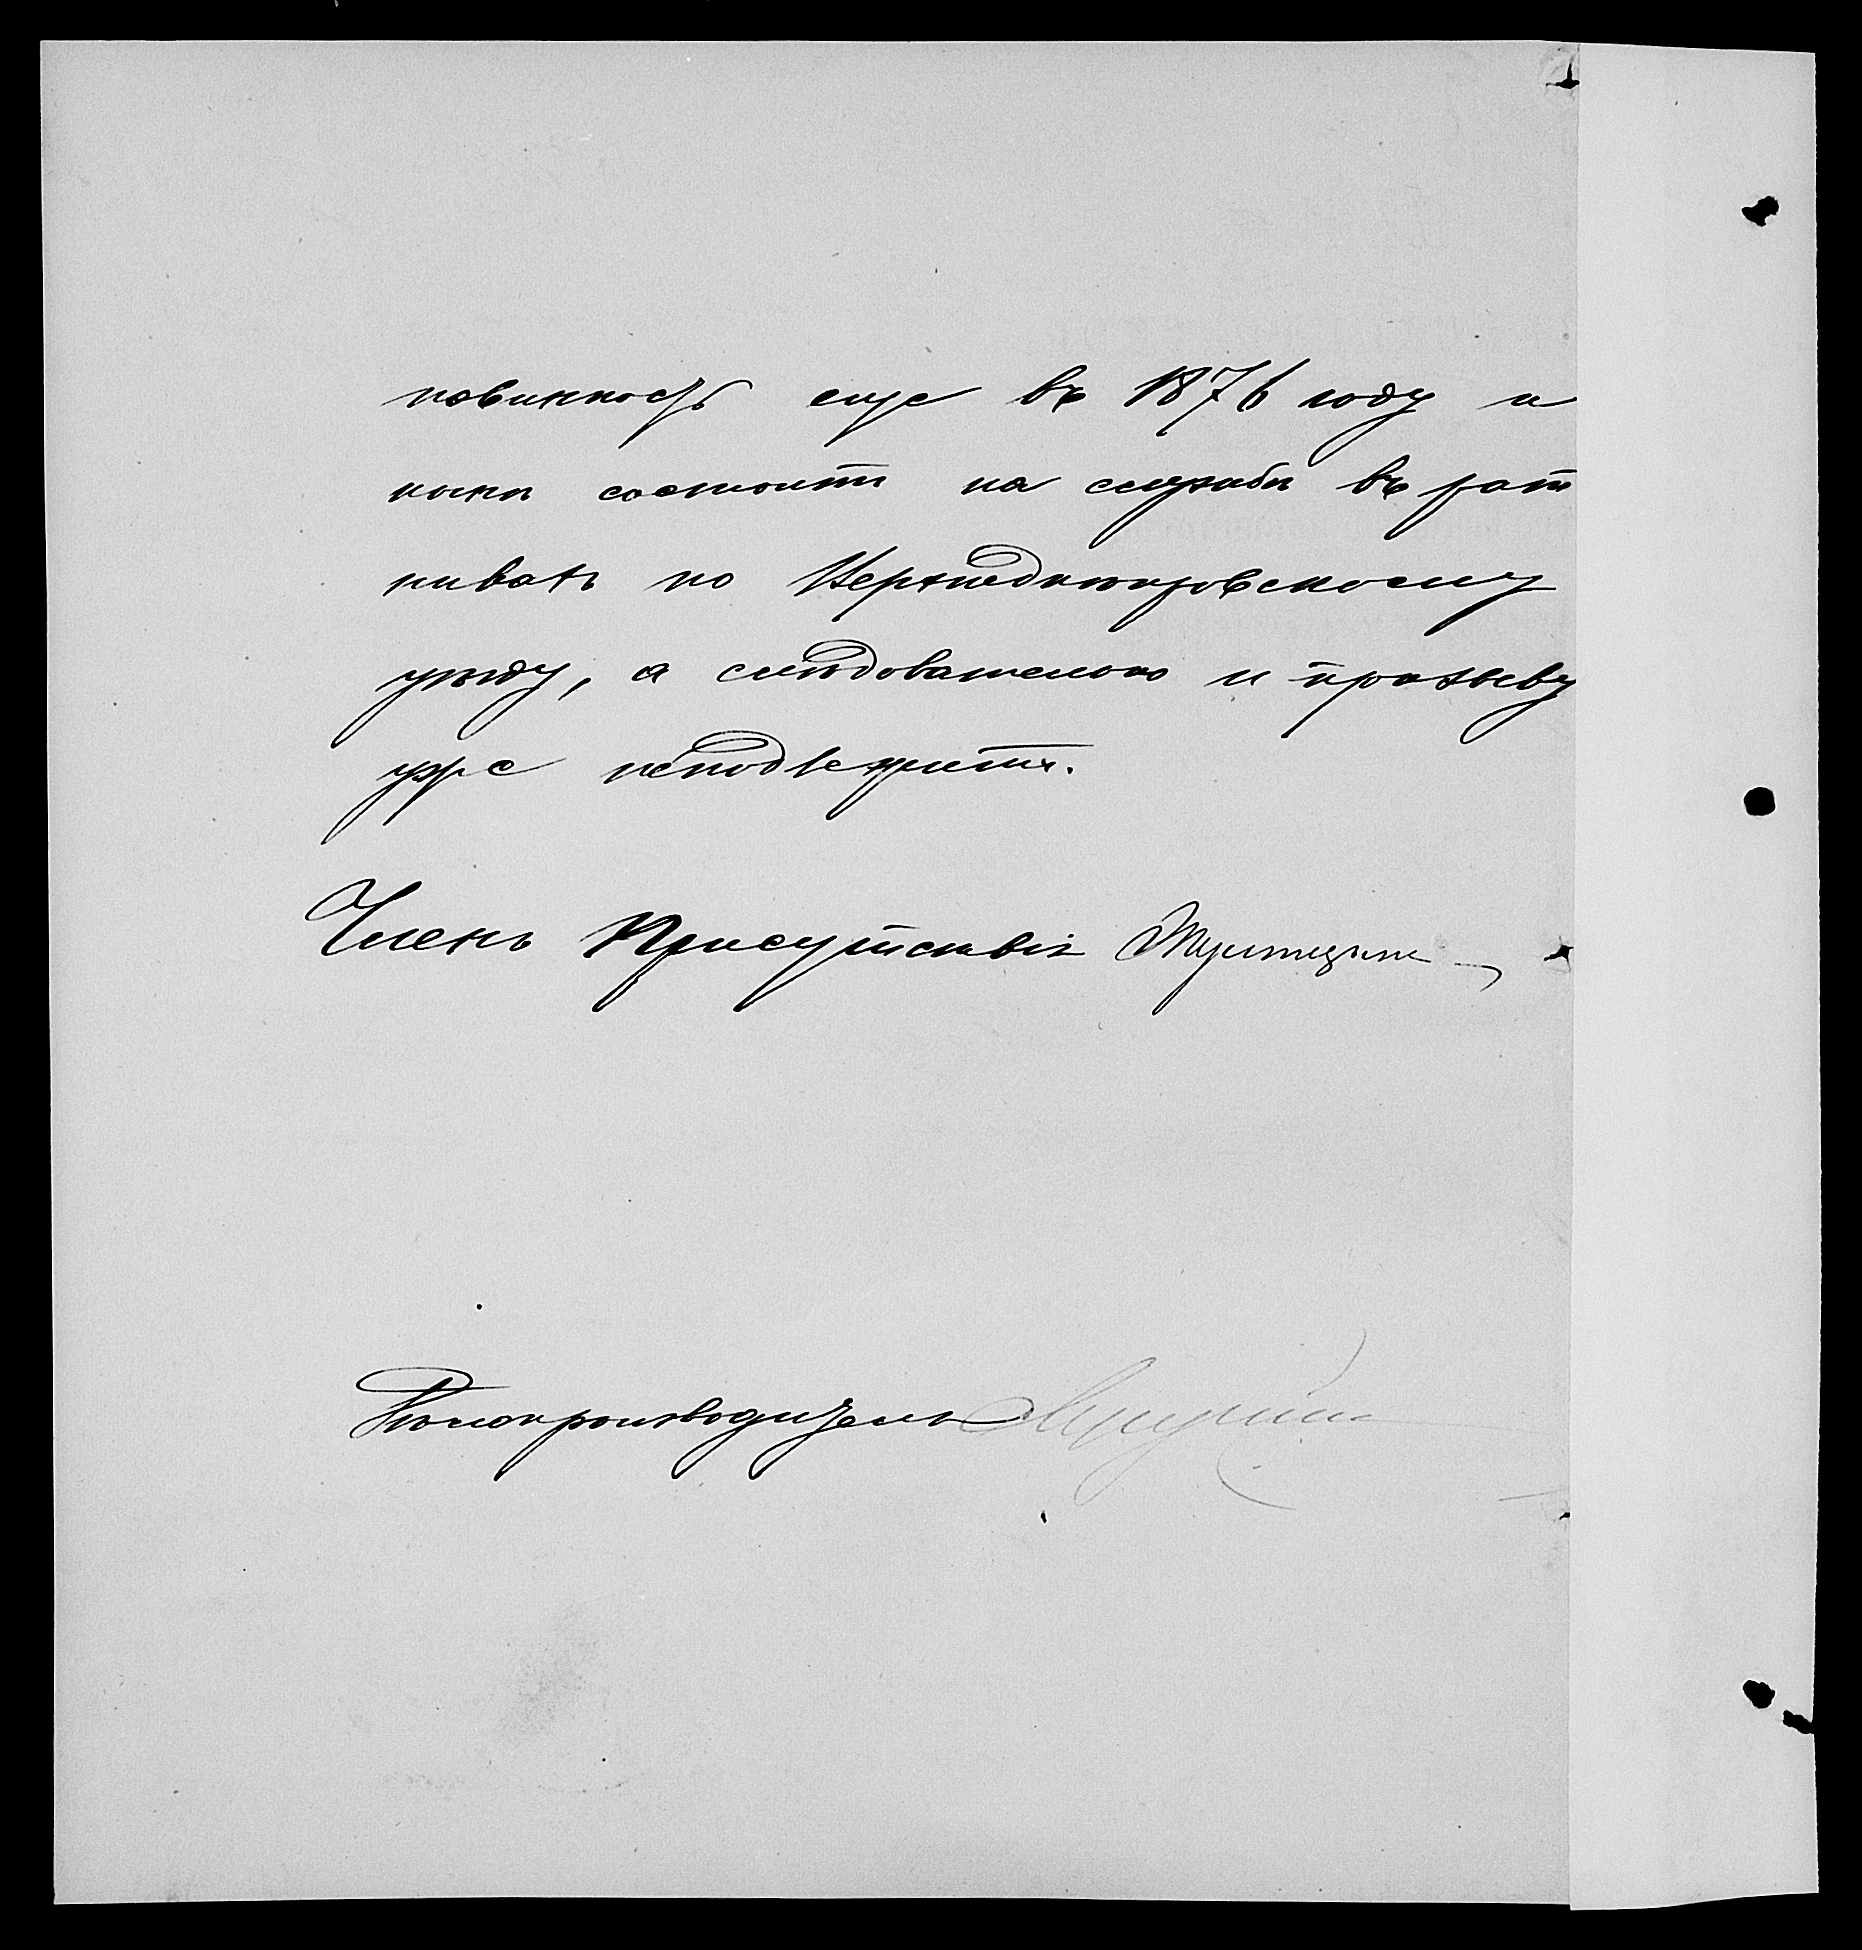 повинность еще въ 1876 году и
нынѣ состоитъ на службѣ въ рат
никахъ по Верхнеднѣпровскому
уѣзду, а слѣдовательно и призыву
уже неподлежитъ.
Членъ Присутствія
Дѣлопроизводитель